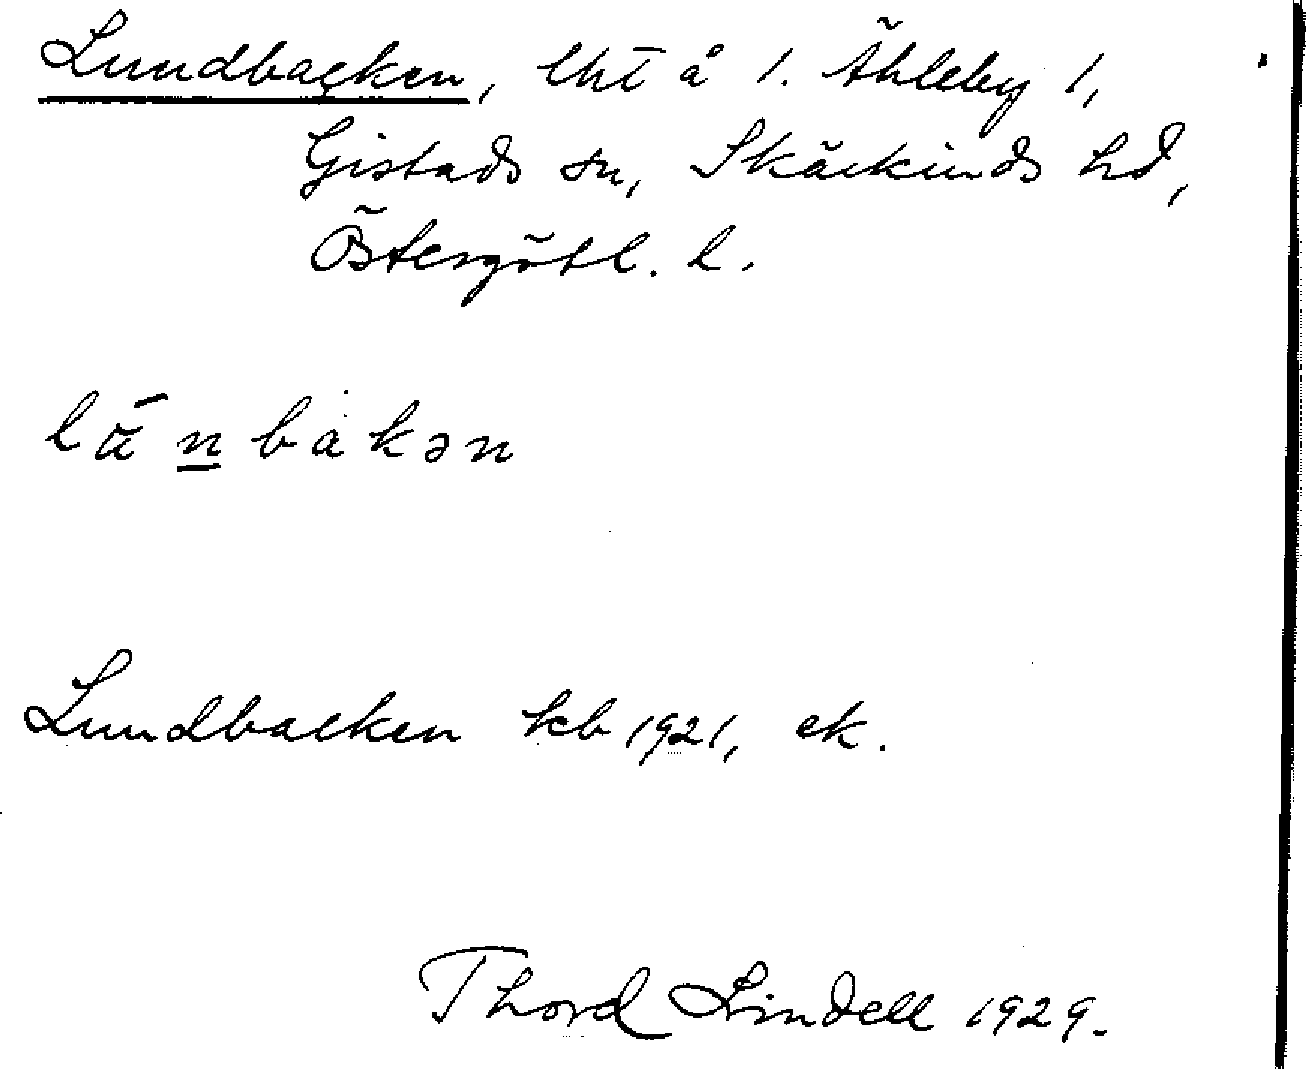 Lundbacken, lht å 1. Ähleby 1,
Gistads sn, Skärkinds hd,
Östergötl. l.
bakən
Lundbacken kb 1921, ek.
Thord Lindell 1929.